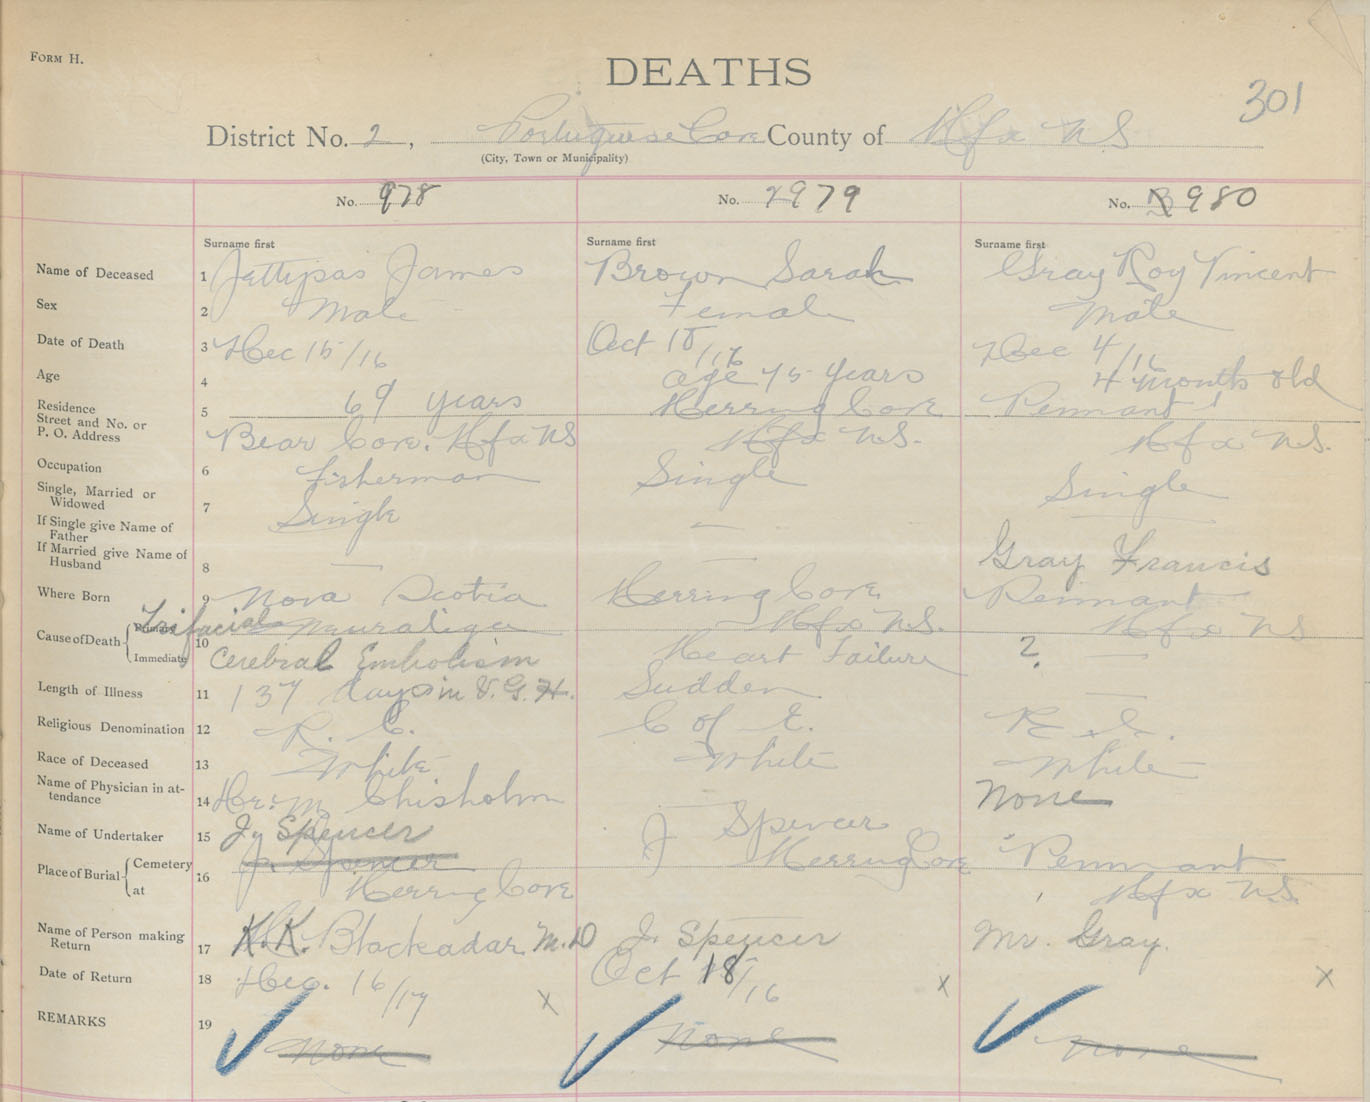 FORM H.
DEATHS
301
District No. 2, Portuguese Cove County of Hfx NS
(City, Town or Municipality)
No. 978 No. 2979 No. 3 980
Surname first Surname first Surname first
Name of Deceased 1 James Brown Sarah Gray Roy Vincent
Sex 2 Male Female Male
Date of Death 3 Dec 15/16 Oct 18/16 Dec 4/16
Age 4 69 years age 75 years 4 months old
Residence
Street and No. or
P. O. Address 5 Bear Cove. Hfx NS Herring Cove Hfx N.S. Pennant Hfx N.S.
Occupation 6 Fisherman Single
Single, Married or
Widowed 7 Single — Single
If Single give Name of
Father
If Married give Name of
Husband 8 — — Gray Francis
Where Born 9 Nova Scotia Herring Cove Hfx N.S. Pennant Hfx NS
Cause of Death Primary Trifacial Neuralgia
10
Immediate Cerebral Embolism Heart Failure ? —
Length of Illness 11 137 days in V.G.H. Sudden —
Religious Denomination 12 R. C. C of E.
Race of Deceased 13 White White White
Name of Physician in at-
tendance 14 Chisholm None
Name of Undertaker 15 Jy Spencer J Spencer
Place of Burial Cemetery J. Spencer Herring Cove Pennant
16
at Herring Cove Hfx N.S.
Name of Person making
Return 17 K.K. Blackadar M.D J. Spencer Mr. Gray.
Date of Return 18 Dec. 16/17 x Oct 18/16 x x
REMARKS 19 None None None